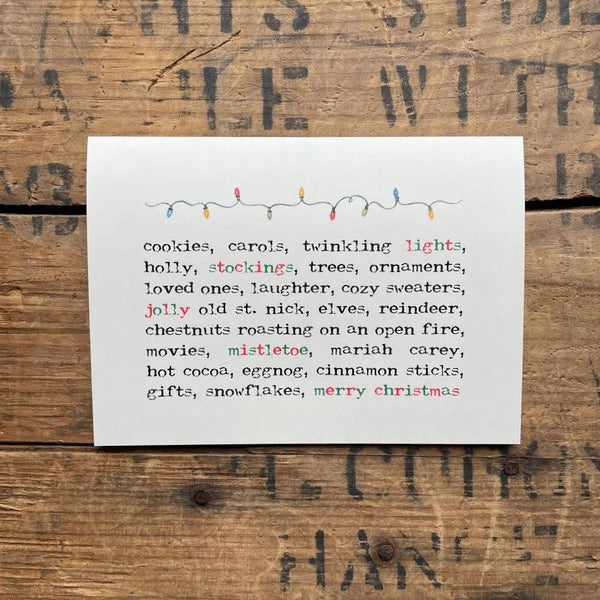 LE WITH
cookies, carols, twinkling lights,
holly, stockings, trees, ornaments,
loved ones, laughter, cozy sweaters,
jolly old st. nick, elves, reindeer,
chestnuts roasting on an open fire,
movies, mistletoe, mariah carey,
hot cocoa, eggnog, cinnamon sticks,
gifts, snowflakes, merry christmas